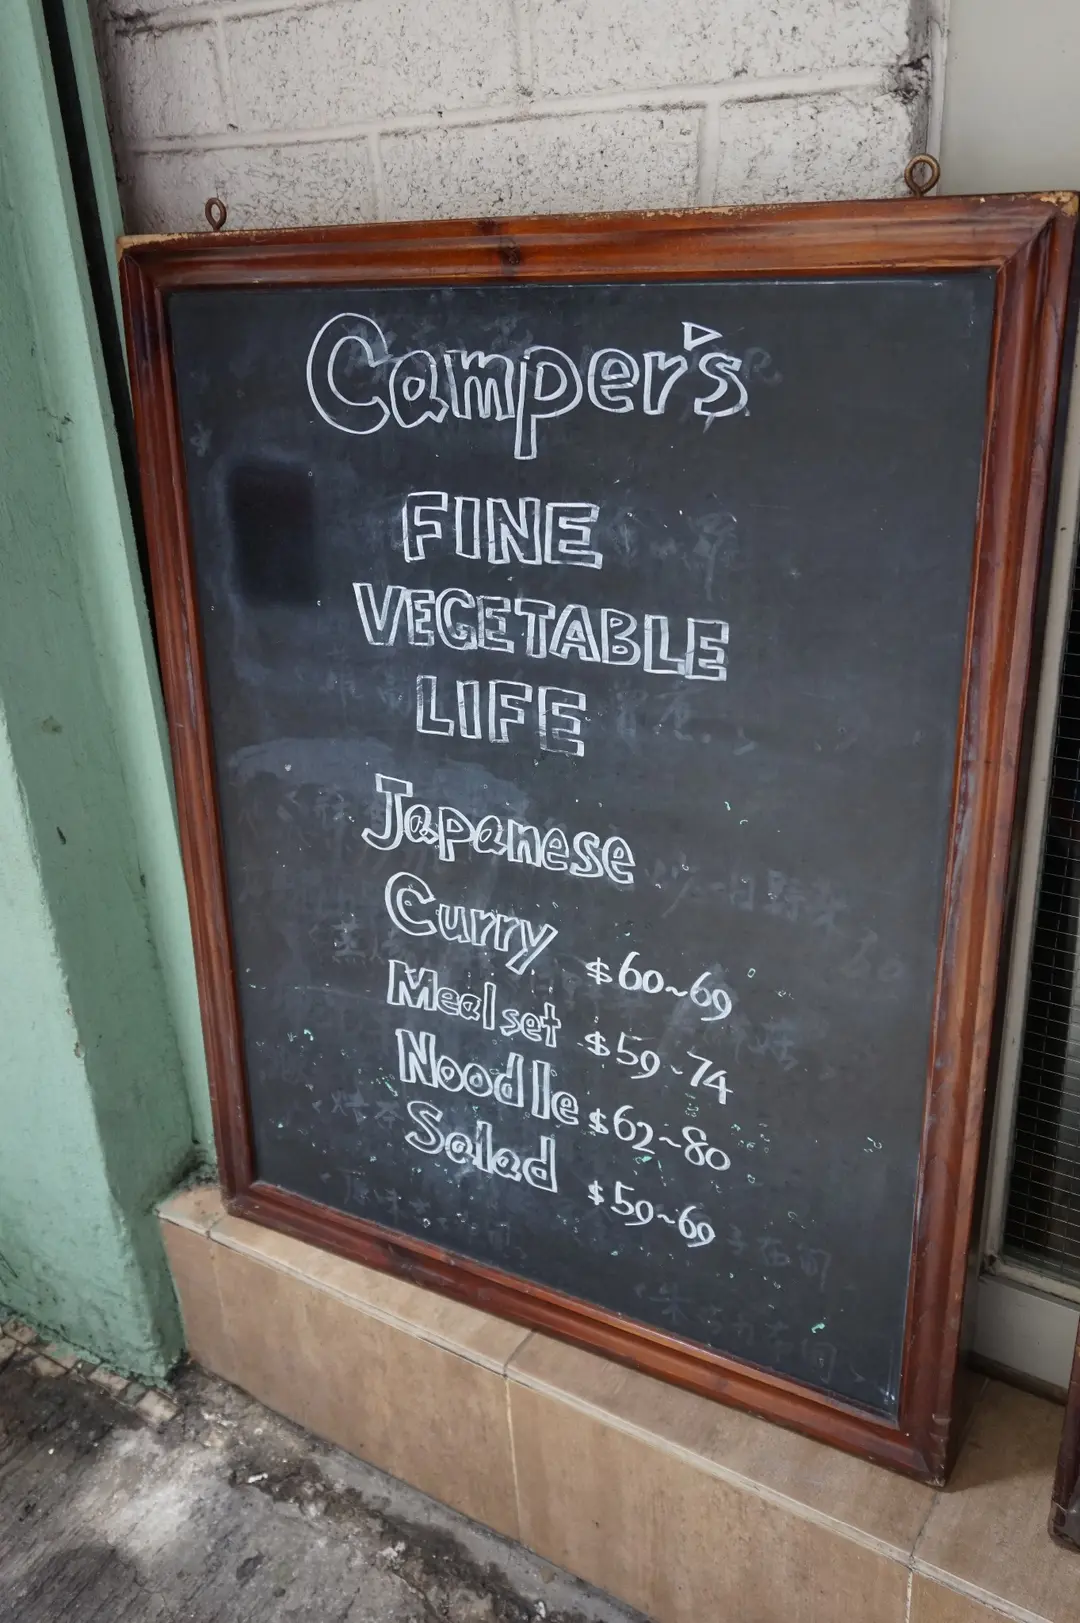 Camper's
FINE
VEGETABLE
LIFE
Japanese
Curry $60~69
Meal set $59~74
Noodle $62~80
Salad $59~69